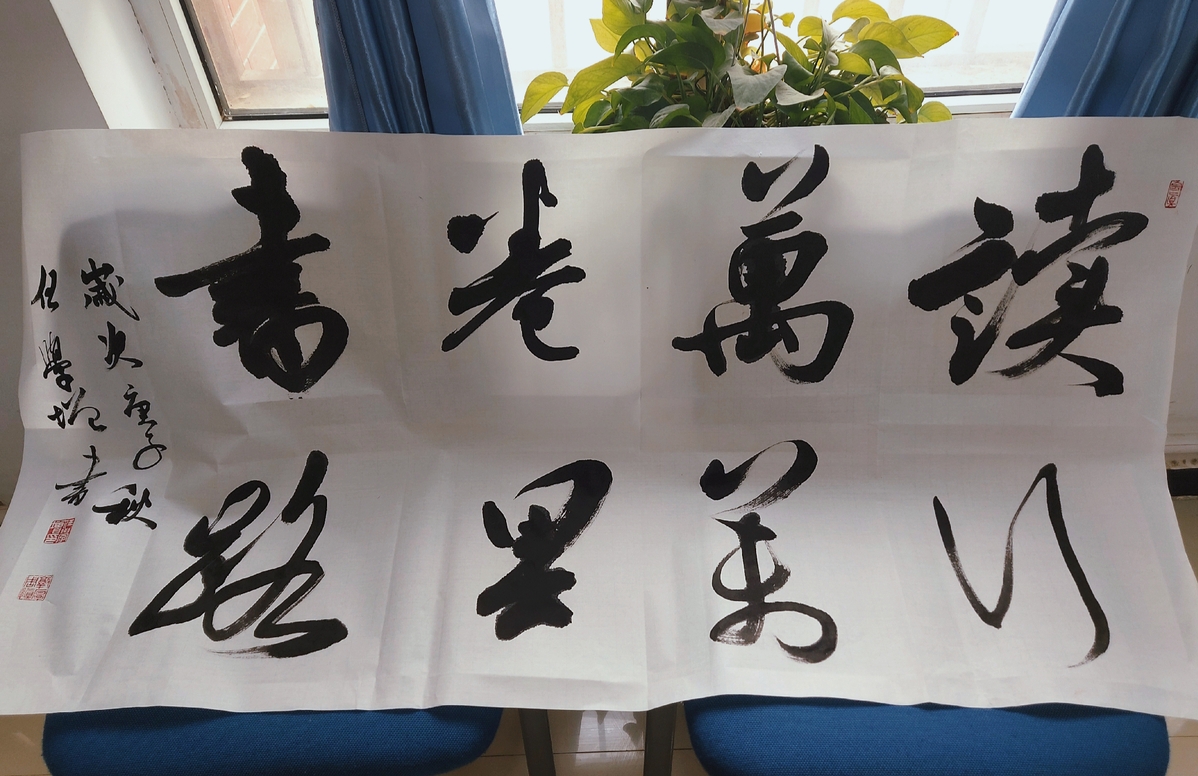 讀萬卷書
行萬里路
歲次庚子秋
任學書